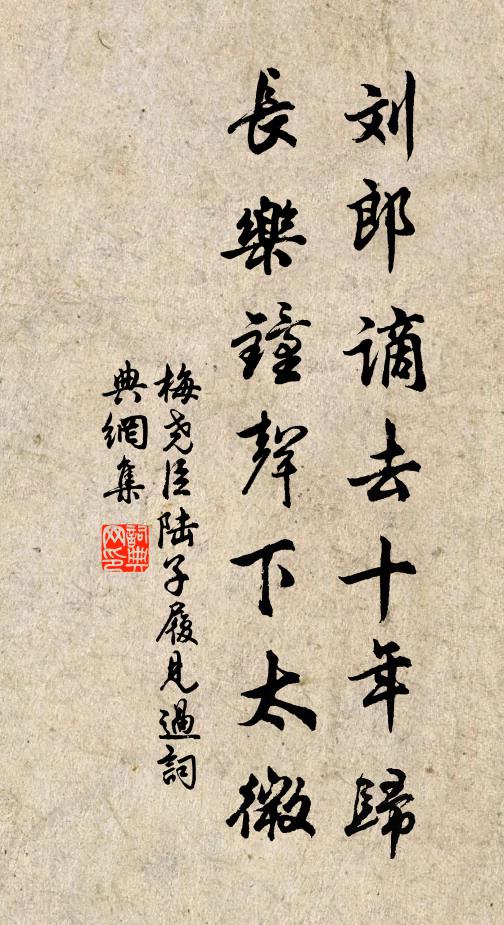 刘郎谪去十年歸
長樂鐘聲下太微
梅尧臣陆子履見過詞
典網集
詞典網印